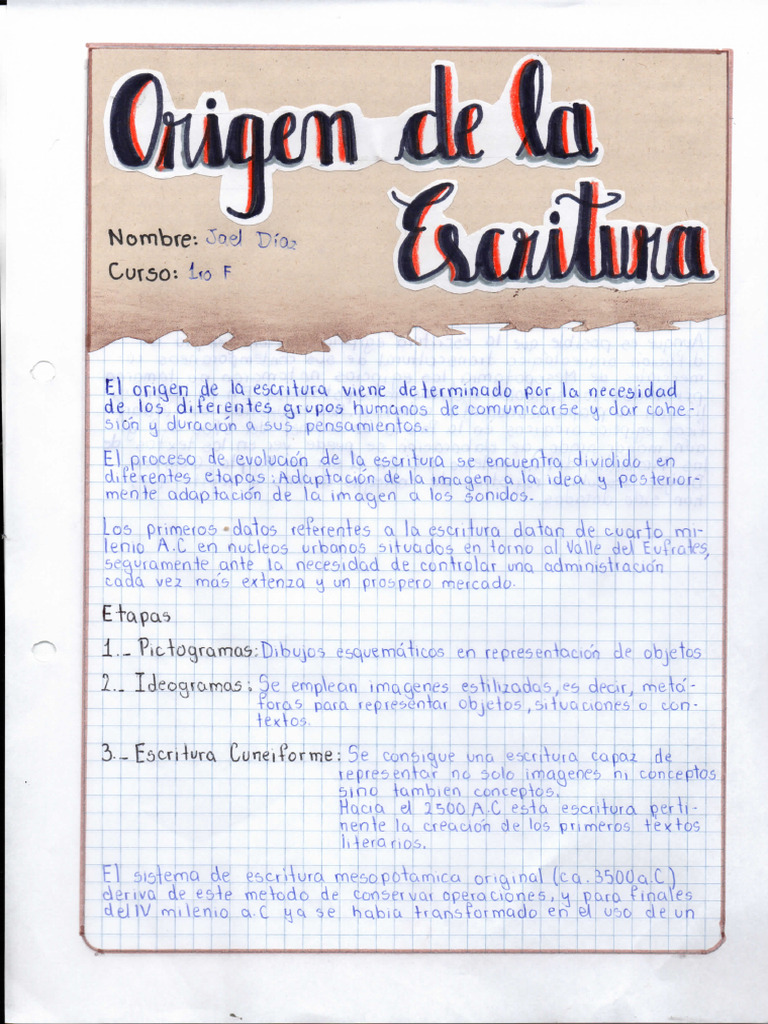 Origen de la
Escritura
Nombre: Joel Díaz
Curso: 1ro F
El origen de la escritura viene determinado por la necesidad
de los diferentes grupos humanos de comunicarse y dar cohe-
sión y duración a sus pensamientos.
El proceso de evolución de la escritura se encuentra dividido en
diferentes etapas: Adaptación de la imagen a la idea y posterior-
mente adaptación de la imagen a los sonidos.
Los primeros datos referentes a la escritura datan de cuarto mi-
lenio A.C en nucleos urbanos situados en torno al Valle del Eufrates,
seguramente ante la necesidad de controlar una administración
cada vez más extenza y un prospero mercado.
Etapas
1._ Pictogramas: Dibujos esquemáticos en representación de objetos
2._ Ideogramas: Se emplean imagenes estilizadas, es decir, metá-
foras para representar objetos, situaciones o con-
textos.
3._ Escritura Cuneiforme: Se consigue una escritura capaz de
representar no solo imagenes ni conceptos
sino tambien conceptos.
Hacia el 2500 A.C esta escritura perti-
nente la creación de los primeros textos
literarios.
El sistema de escritura mesopotamica original (ca. 3500 a.C)
deriva de este metodo de conservar operaciones, y para finales
del IV milenio a.C ya se habia transformado en el uso de un